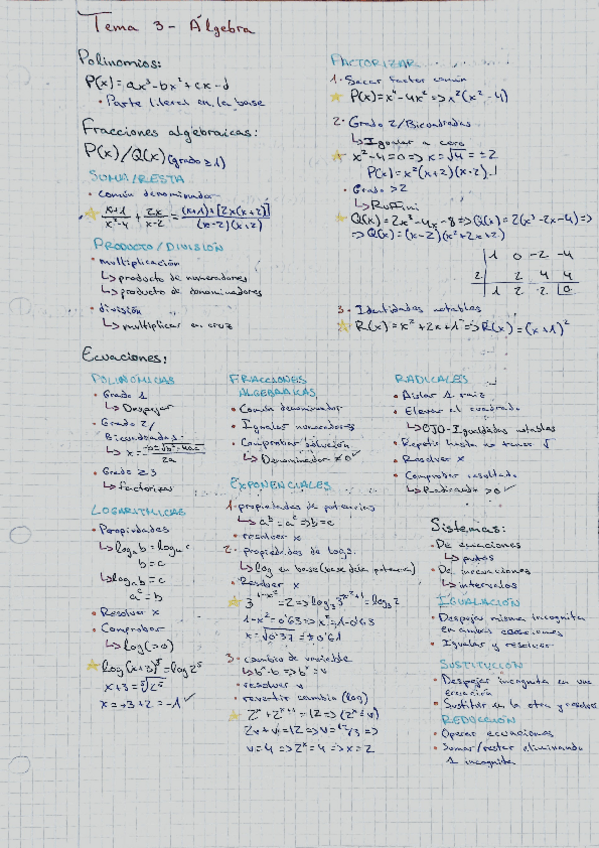 Tema 3 - Álgebra
Polinomios:
P(x) = ax³ - bx² + cx - d
• Parte literal en la base
Fracciones algebraicas:
P(x)/Q(x) (grado ≥ 1)
SUMA/RESTA
• común denominador
PRODUCTO/DIVISIÓN
• multiplicación
↳ producto de numeradores
↳ producto de denominadores
• división
↳ multiplicar en cruz
FACTORIZAR
1. Sacar factor común
P(x) = x⁴ - 4x² => x²(x² - 4)
2. Grado 2/Bicuadradas
↳ Igualar a cero
x² - 4 = 0 => x = √4 = ±2
P(x) = x²(x+2)(x-2)
• Grado > 2
↳ Ruffini
Q(x) = 2x³ - 4x - 8 => Q(x) = 2(x³ - 2x - 4) =>
=> Q(x) = (x-2)(x²+2x+2)
1 0 -2 -4
2 2 4 4
1 2 2 0
3. Identidades notables
R(x) = x² + 2x + 1 => R(x) = (x+1)²
Ecuaciones:
POLINÓMICAS
• Grado 1
↳ Despejar
• Grado 2/
Bicuadradas
• Grado ≥ 3
↳ factorizar
LOGARÍTMICAS
• Propiedades
b = c
↳ logₐ b = c
aᶜ = b
• Resolver x
• Comprobar
↳ log(>0)
log(x+3)⁵ = log 2⁵
x+3 = ⁵√2⁵
x = -3 + 2 = -1 ✓
FRACCIONES
ALGEBRAICAS
• Común denominador
• Igualar numeradores
• Comprobar solución
↳ Denominador ≠ 0 ✓
EXPONENCIALES
1. propiedades de potencias
↳ aᵇ = aᶜ => b = c
• resolver x
2. propiedades de logs.
↳ log en base (base de la potencia)
• Resolver x
1 - x² = 0'63 => x² = 1 - 0'63
x = √0'37 => 0'61
3. cambio de variable
• resolver v
• revertir cambio (log)
2ˣ + 2ˣ⁺¹ = 12 => (2ˣ = v)
2v + v = 12 => v = 12/3 =>
v = 4 => 2ˣ = 4 => x = 2
RADICALES
• Aislar 1 raíz
• Elevar al cuadrado
↳ OJO - Igualdades notables
• Repetir hasta no tener √
• Resolver x
• Comprobar resultado
↳ Radicando > 0 ✓
Sistemas:
• De ecuaciones
↳ puntos
• De inecuaciones
↳ intervalos
IGUALACIÓN
• Despejar misma incógnita
en ambas ecuaciones
• Igualar y resolver
SUSTITUCIÓN
• Despejar incógnita en una
ecuación
• Sustituir en la otra y resolver
REDUCCIÓN
• Operar ecuaciones
• Sumar/restar eliminando
1 incógnita